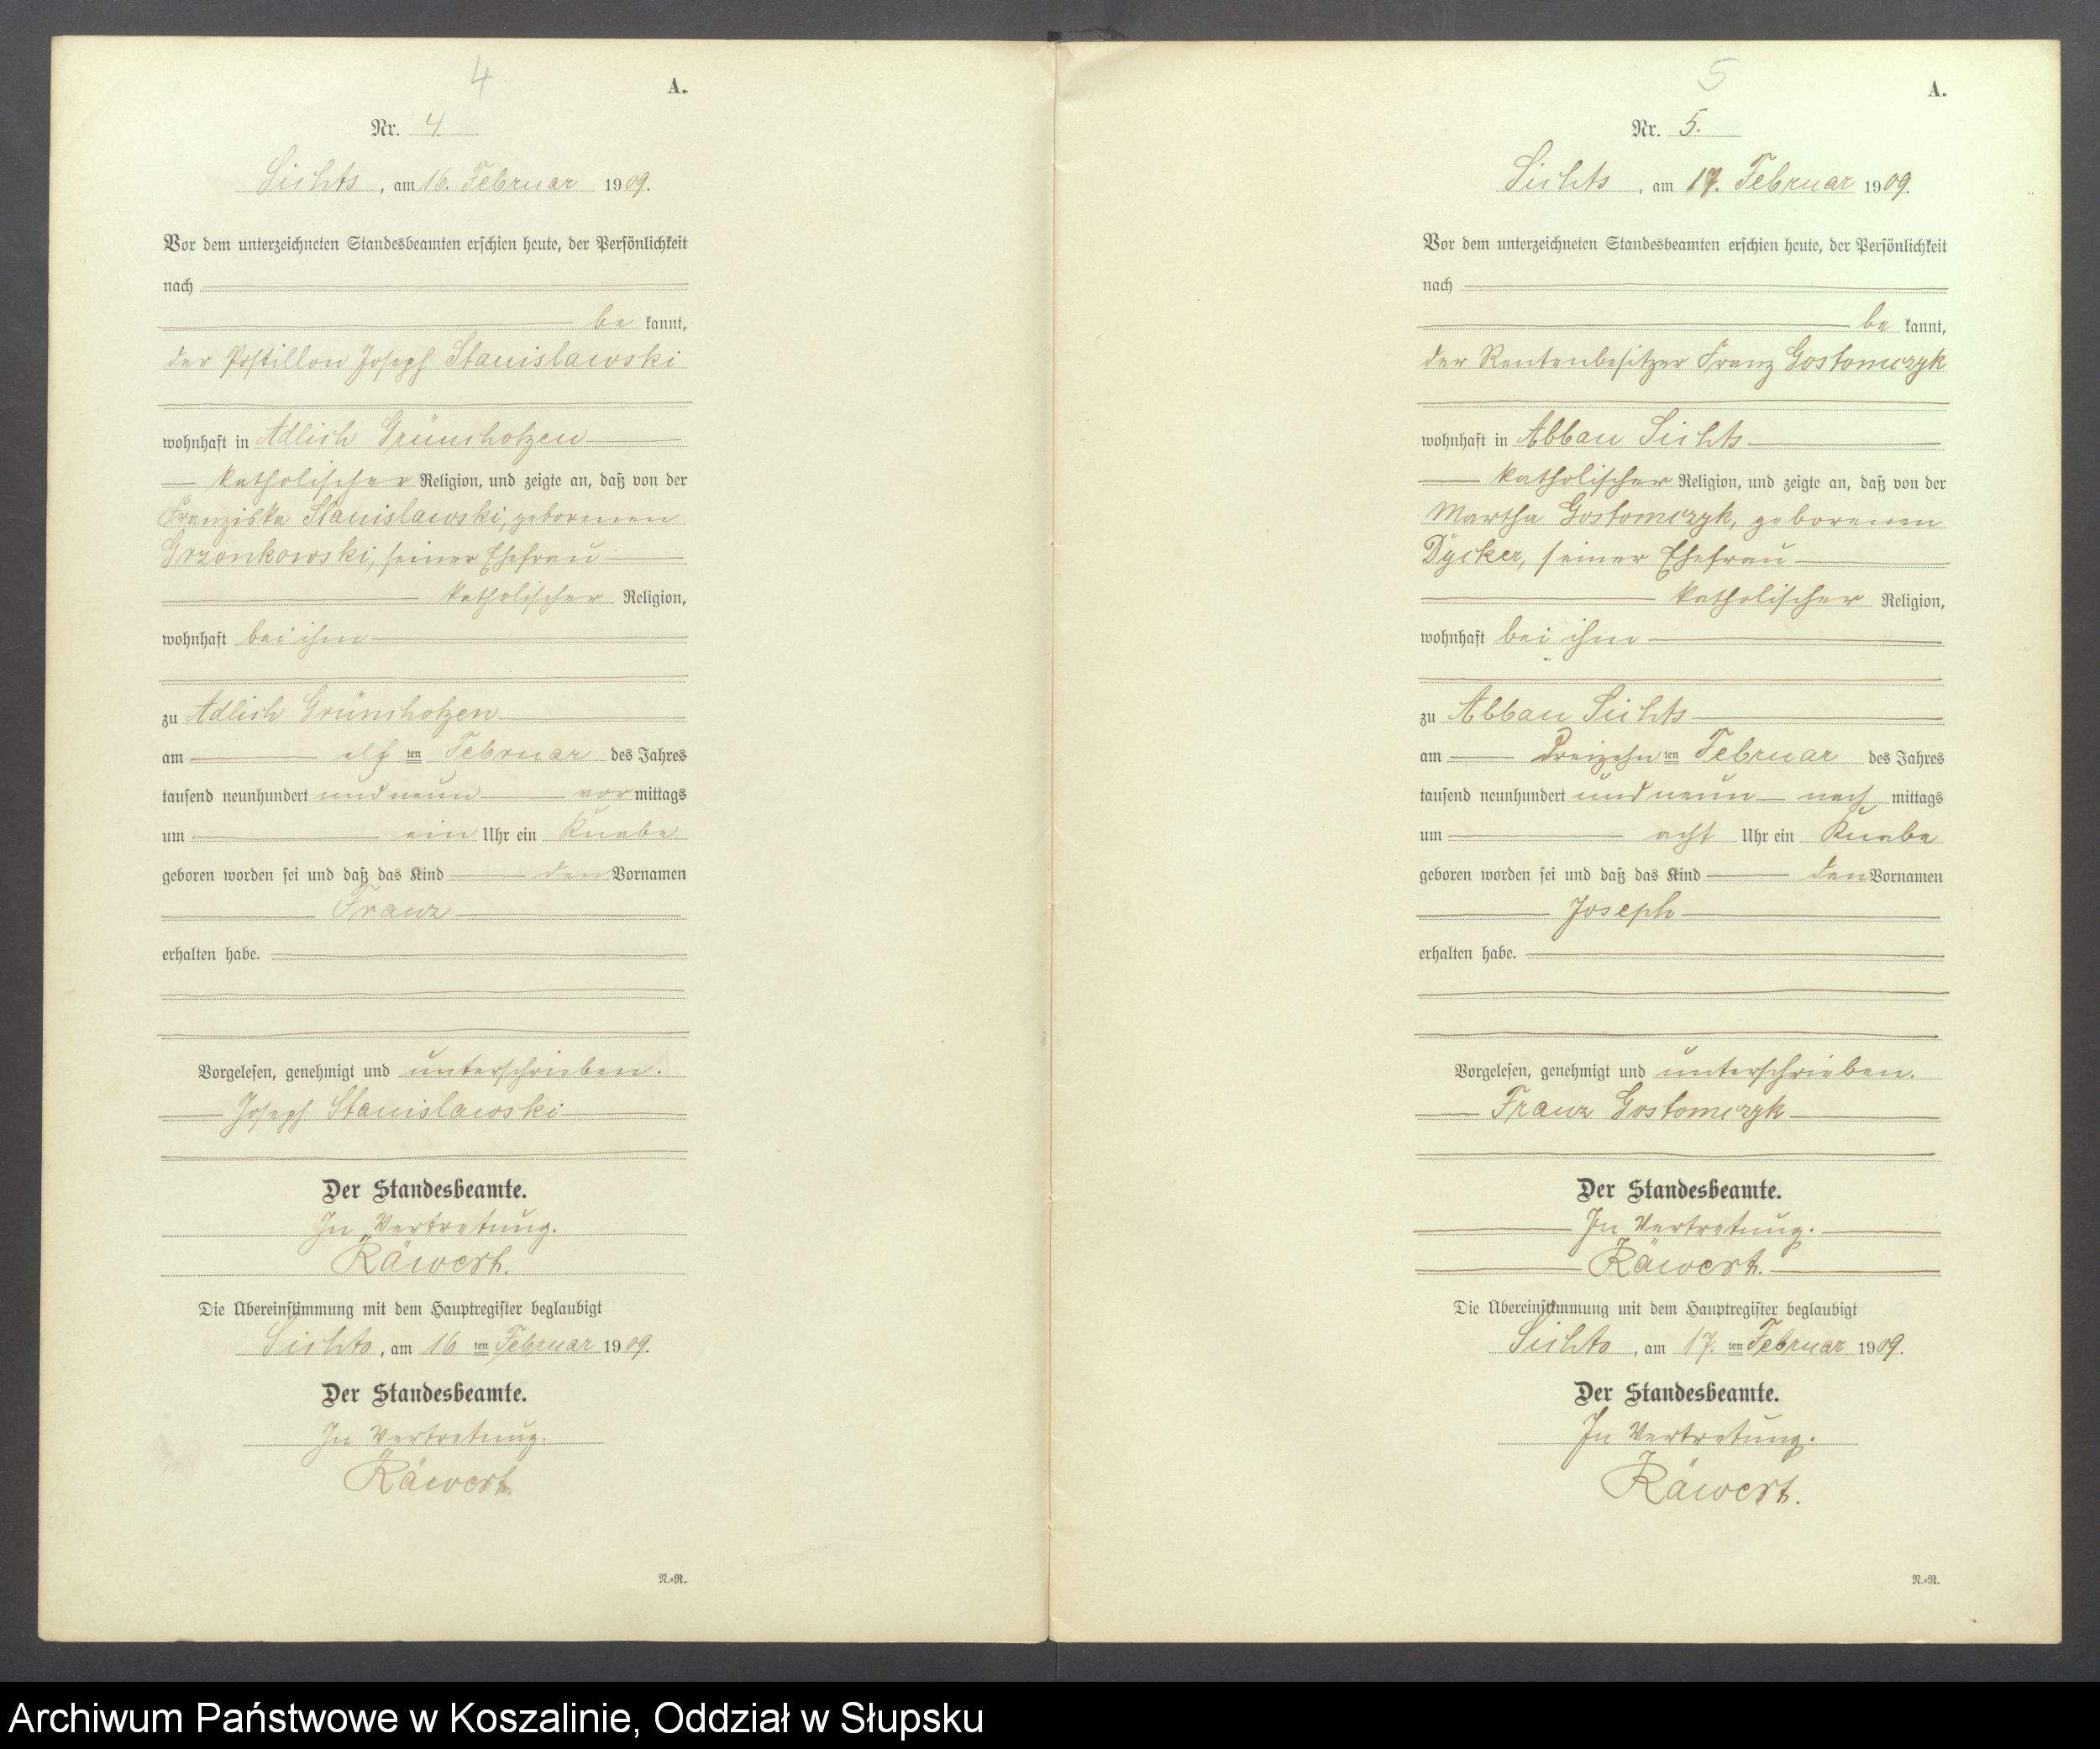 4
A.
Nr. 4.
Sichts, am 16. Februar 1909.
Vor dem unterzeichneten Standesbeamten erschien heute, der Persönlichkeit
nach
be kannt,
der Postillon Joseph Stanislawski
wohnhaft in Adlich Grünchotzen
katholischer Religion, und zeigte an, daß von der
Franziska Stanislawski, geborenen
Grzonkowski, seiner Ehefrau
katholischer Religion,
wohnhaft bei ihm
zu Adlich Grünchotzen
am elf ten Februar des Jahres
tausend neunhundert und neun vor mittags
um ein Uhr ein Knabe
geboren worden sei und daß das Kind den Vornamen
Franz
erhalten habe.
Vorgelesen, genehmigt und unterschrieben.
Joseph Stanislawski
Der Standesbeamte.
In Vertretung.
Räwert.
Die Übereinstimmung mit dem Hauptregister beglaubigt
Sichts, am 16 ten Februar 1909.
Der Standesbeamte.
In Vertretung.
Räwert.
N.-R.
5
A.
Nr. 5.
Sichts, am 17. Februar 1909.
Vor dem unterzeichneten Standesbeamten erschien heute, der Persönlichkeit
nach
be kannt,
der Rentenbesitzer Franz Gostomczyk
wohnhaft in Abbau Sichts
katholischer Religion, und zeigte an, daß von der
Martha Gostomczyk, geborenen
Dycker, seiner Ehefrau
katholischer Religion,
wohnhaft bei ihm
zu Abbau Sichts
am Dreizehn ten Februar des Jahres
tausend neunhundert und neun nach mittags
um acht Uhr ein Knabe
geboren worden sei und daß das Kind den Vornamen
Joseph
erhalten habe.
Vorgelesen, genehmigt und unterschrieben.
Franz Gostomczyk
Der Standesbeamte.
In Vertretung.
Räwert.
Die Übereinstimmung mit dem Hauptregister beglaubigt
Sichts, am 17. ten Februar 1909.
Der Standesbeamte.
In Vertretung.
Räwert.
N.-R.
Archiwum Państwowe w Koszalinie, Oddział w Słupsku